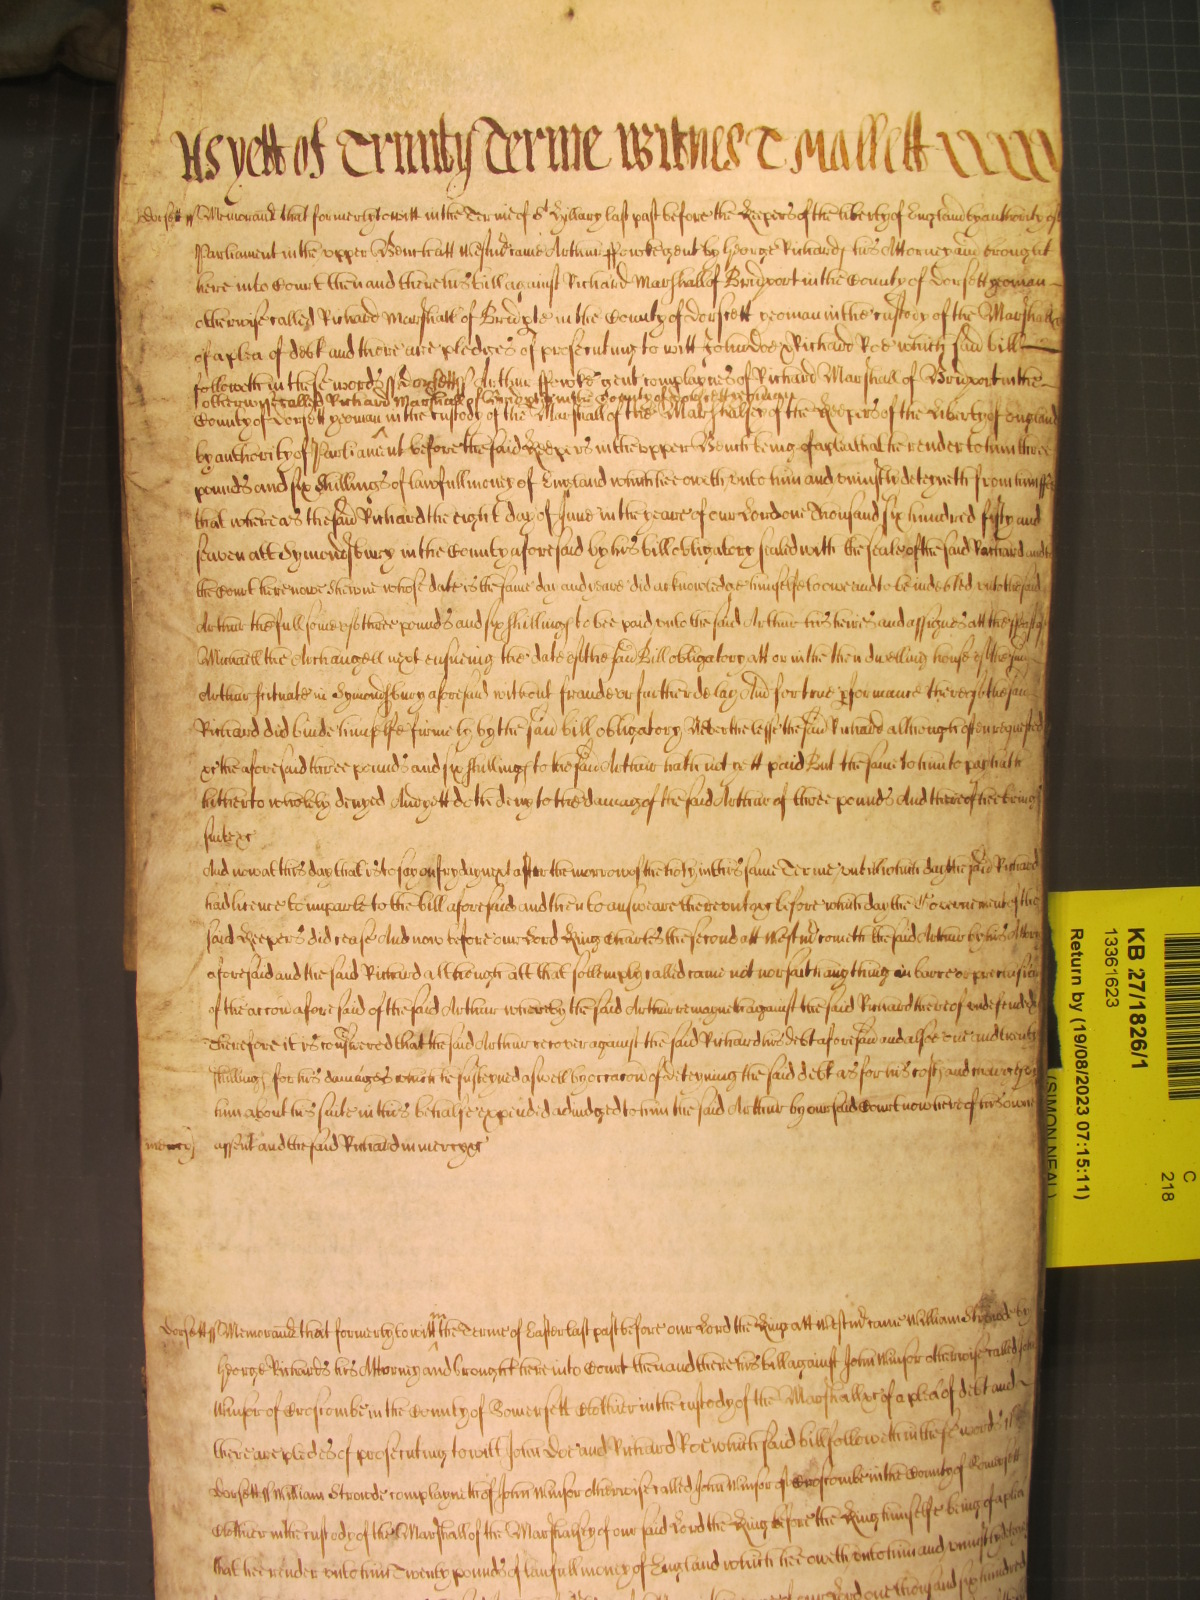 As yett of Trinity Terme Witnes T Mallett XXXX
Dorsett ss Memorand that formerly to witt in the Terme of St Hyllary last past before the Keepers of the liberty of England by authority of
Parliament in the upper Bench att Westmr came Arthur ffowke gent by George Richards his Attorney and brought
here into Court then and there his bill against Richard Marshall of Bridport in the County of Dorsett yeoman
otherwise called Richard Marshall of in the County of Dorsett yeoman in the custody of the Marshall
of a plea of debt and there are pledges of prosecuting to witt John Doe & Richard Roe which said bill
followeth in these words ss Dorsett ss Arthur ffowke gent complaynes of Richard Marshall of Bridport in the
otherwise called Richard Marshall of in the County of Dorsett yeoman
County of Dorsett yeoman in the custody of the Marshall of the Marshalsey of the Keepers of the Liberty of England
by authority of Parliament before the said Keepers in the upper Bench being of a plea that he render to him three
pounds and six shillings of lawfull money of England which hee oweth unto him and uniustly deteyneth from him ffor
that whereas the said Richard the eight day of June in the yeare of our Lord one thousand six hundred fifty and
seaven att Symondsbury in the County aforesaid by his bill obligatory sealed with the seale of the said Richard and to
the Court here nowe shewne whose date is the same day and yeare did acknowledge himselfe to owe and to be indebted unto the said
Arthur the full some of three pounds and six shillings to bee paid unto the said Arthur his heires and assignes att the ffeast of
Michaell the Archangell next ensueing the date of the said Bill obligatory att or in the then dwelling house of the said
Arthur scituate in Symondsbury aforesaid without fraude or further delay And for true pformance thereof the said
Richard did binde himselfe firmely by the said bill obligatory Neverthelesse the said Richard although often requested
&c the aforesaid three pounds and six shillings to the said Arthur hath not yett paid But the same to him to pay hath
hitherto wholely denyed And yett doth deny to the damag of the said Arthur of three pounds And thereof hee brings
suite &c
And now at this day that is to say on fryday next after the morrow of the holy in this same Terme untill which day the said Richard
had licence to imparle to the bill aforesaid and then to answeare thereunto &c before which day the Government of the
said Keepers did cease And now before our Lord King Charles the second att Westmr cometh the said Arthur by his Attorney
aforesaid and the said Richard although att that sollemply called came not nor saith any thing in barre or preclusion
of the accon aforesaid of the said Arthur whereby the said Arthur remayneth against the said Richard thereof undefended
Therefore it is considered that the said Arthur recover against the said Richard his debt aforesaid and alsoe one and twenty
shillings for his damages which he susteyned aswell by occacon of deteyning the said debt as for his costs and
him about his suite in this behalfe expended adiudged to him the said Arthur by our said Court now here of his owne
mercy assent and the said Richard in mercy &c
Dorsett ss Memorand that formerly to witt in the Terme of Easter last past before our Lord the King att Westmr came William Strowde by
George Richards his Attorney and brought here into Court then and there his bill against John Winsor otherwise called John
Winsor of Croscombe in the County of Somersett Clothier in the custody of the Marshall &c of a plea of debt and
there are pledes of prosecuting to witt John Doe and Richard Roe which said bill followeth in these words ss
Dorsett ss William Strowde complayneth of John Winsor otherwise called John Winsor of Croscombe in the County of Somersett
Clothier in the custody of the Marshall of the Marshalsey of our said Lord the King before the King himselfe being of a plea
that hee render unto him Twenty pounds of lawfull money of England which hee oweth unto him and uniustly
of our Lord one thousand six hundred
KB 27/1826/1
13361623
Return by (19/08/2023 07:15:11)
(SIMON NEAL)
C
218